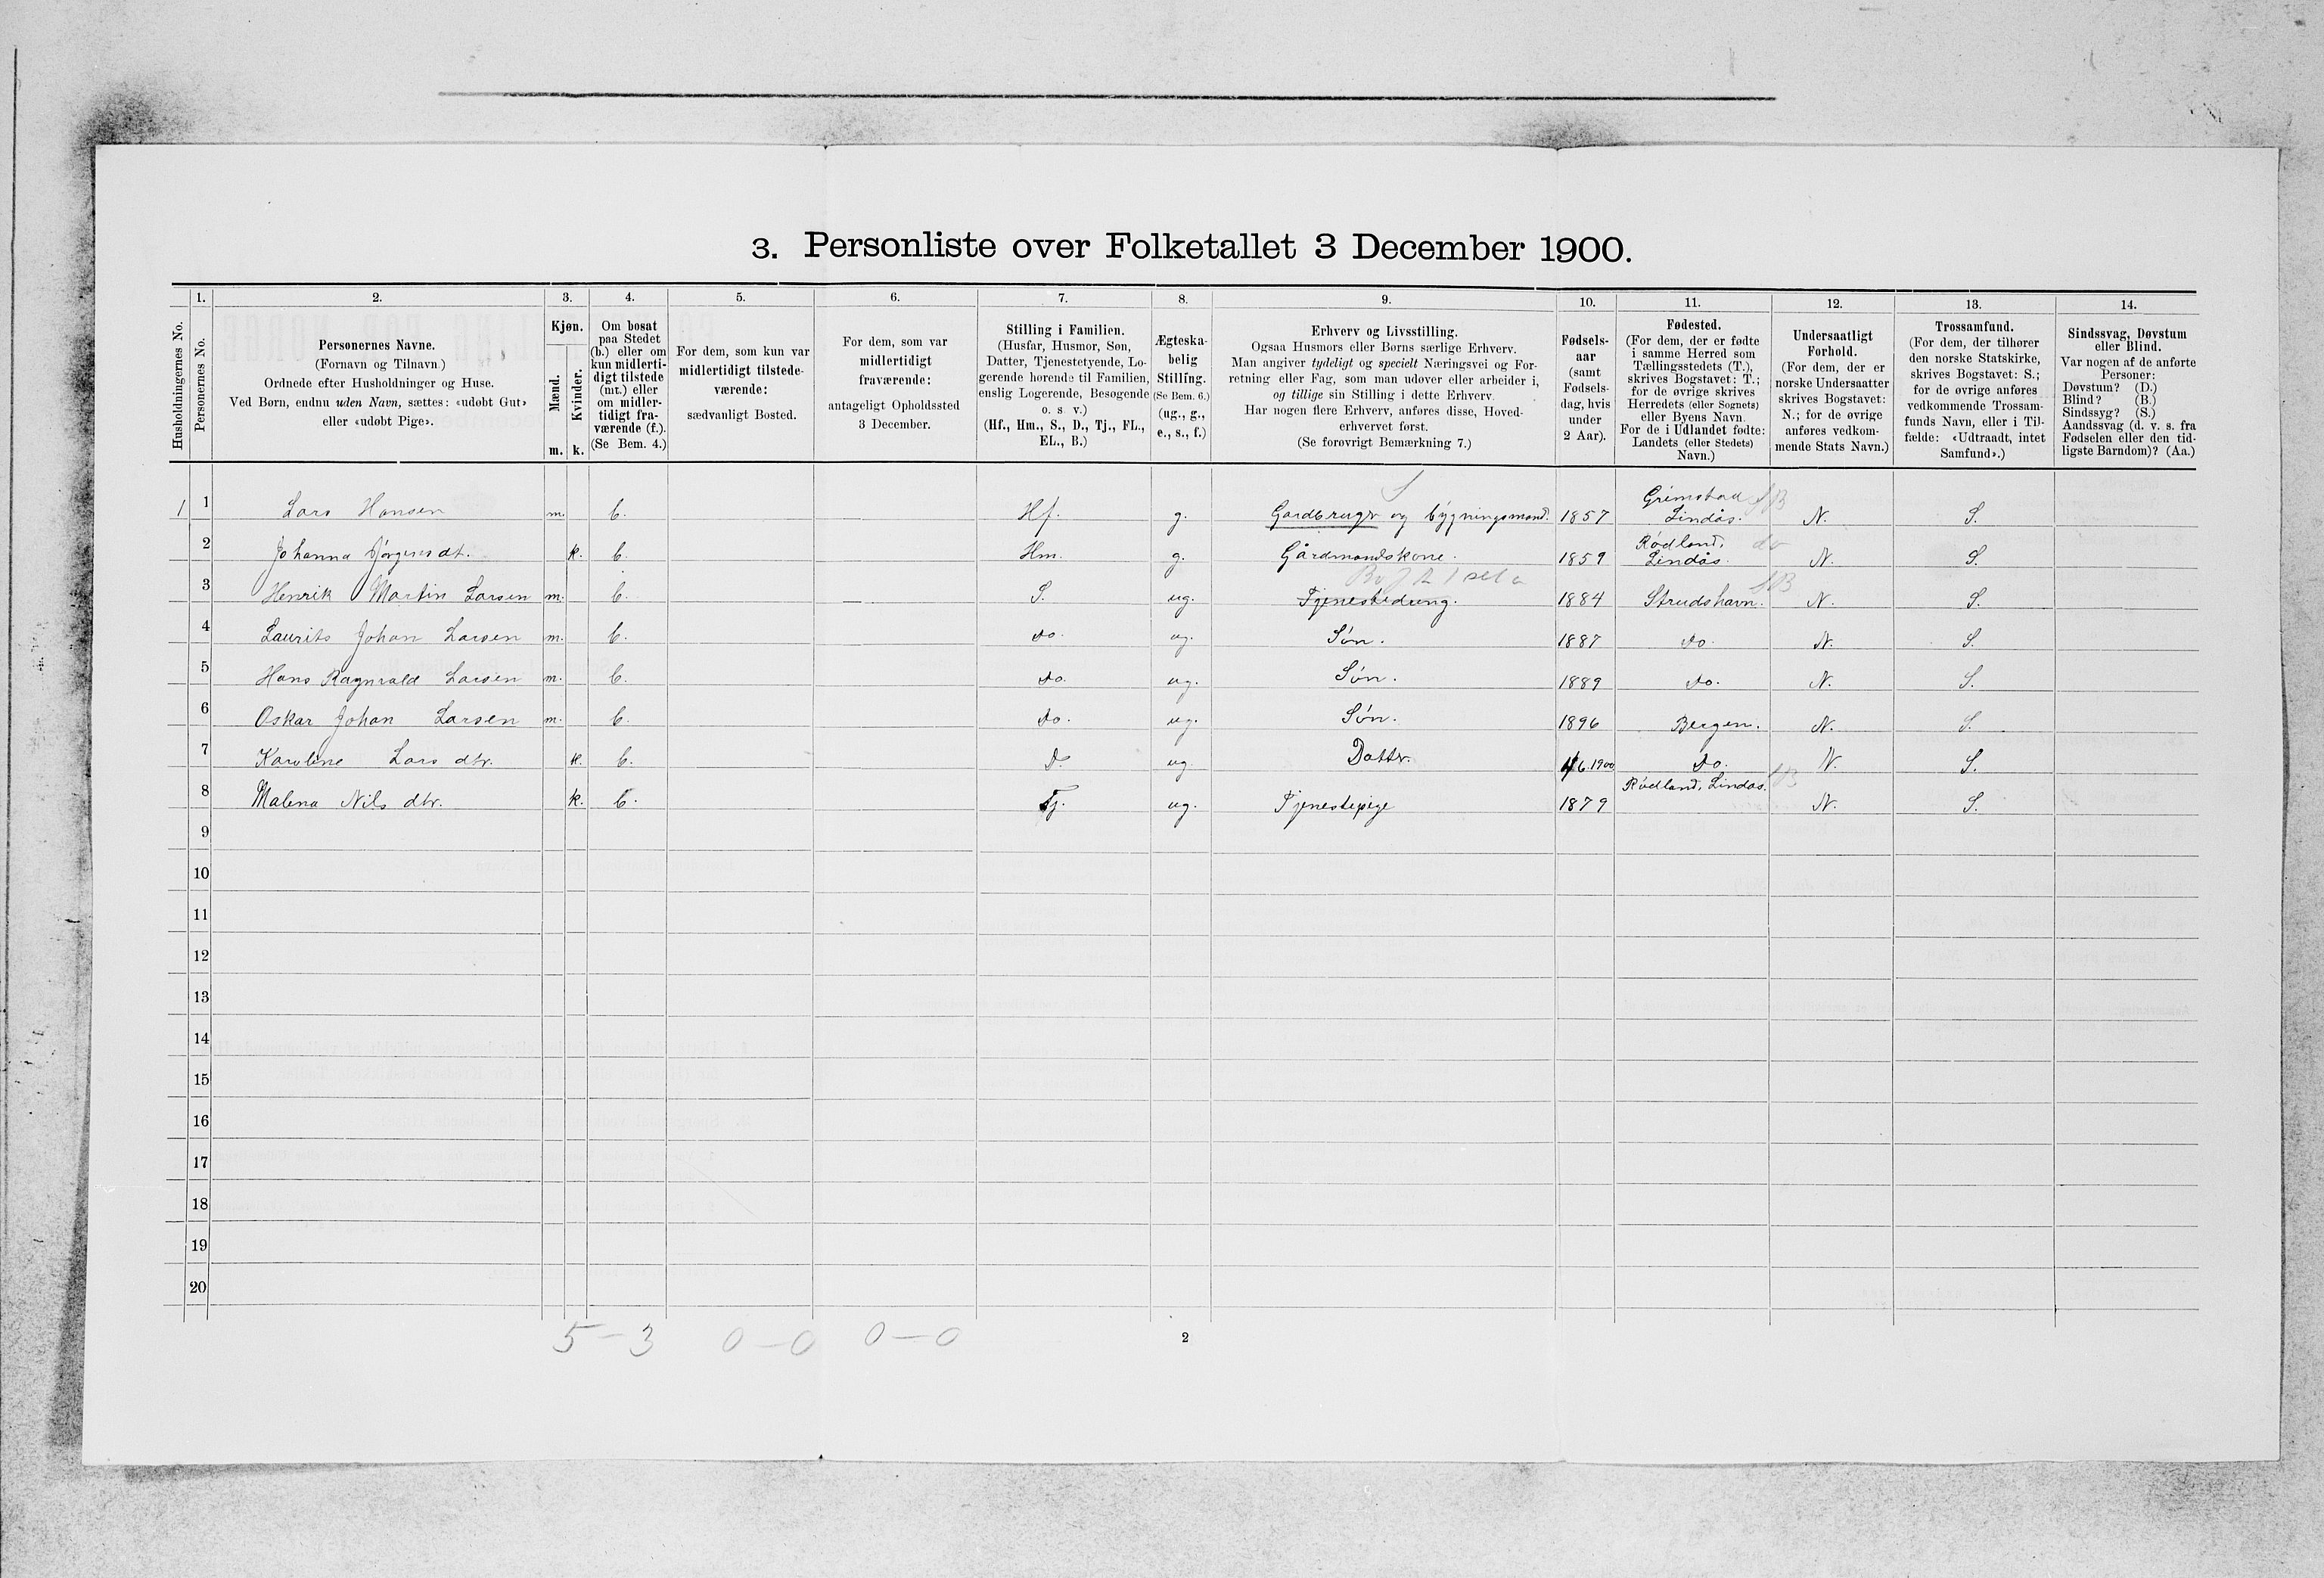 3. Personliste over Folketallet 3 December 1900.
Husholdningernes No.
1.
Personernes No.
2.
Personernes Navne.
(Fornavn og Tilnavn)
Ordnede efter Husholdninger og Huse.
Ved Børn, endnu uden Navn, sættes: «udøbt Gut»
eller «udøbt Pige».
3.
Kjøn.
Mænd.
Kvinder.
m. k.
4.
Om bosat
paa Stedet
(b.) eller om
kun midlerti-
digt tilstede
(mt.) eller
om midler-
tidigt fra-
værende (f.).
(Se Bem. 4.)
5.
For dem, som kun var
midlertidigt tilstede-
værende:
sædvanligt Bosted.
6.
For dem, som var
midlertidigt
fraværende:
antageligt Opholdssted
3 December.
7.
Stilling i Familien.
(Husfar, Husmor, Søn,
Datter, Tjenestetyende, Lo-
gerende hørende til Familien,
enslig Logerende, Besøgende
o. s v.)
(Hf., Hm., S., D., Tj., FL.,
EL., B.)
8.
Ægteska-
belig
Stilling.
(Se Bem. 6.)
(ug., g.,
e., s., f.)
9.
Erhverv og Livsstilling.
Ogsaa Husmors eller Børns særlige Erhverv.
Man angiver tydeligt og specielt Næringsvei og For-
retning eller Fag, som man udøver eller arbeider i,
og tillige sin Stilling i dette Erhverv.
Har nogen flere Erhverv, anføres disse, Hoved-
erhvervet først.
(Se forøvrigt Bemærkning 7.)
10.
Fødsels-
aar
(samt
Fødsels-
dag, hvis
under
2 Aar).
11.
Fødested.
(For dem, der er fødte
i samme Herred som
Tællingsstedets (T.),
skrives Bogstavet: T.;
for de øvrige skrives
Herredets (eller Sognets)
eller Byens Navn
For de i Udlandet fødte:
Landets (eller Stedets)
Navn.)
12.
Undersaatligt
Forhold.
(For dem, der er
norske Undersaatter
skrives Bogstavet:
N.; for de øvrige
anføres vedkom-
mende Stats Navn.)
13.
Trossamfund.
(For dem, der tilhører
den norske Statskirke,
skrives Bogstavet: S.;
for de øvrige anføres
vedkommende Trossam-
funds Navn, eller i Til-
fælde: «Udtraadt, intet
Samfund».)
14.
Sindssvag, Døvstum
eller Blind.
Var nogen af de anførte
Personer:
Døvstum? (D.)
Blind? (B.)
Sindssyg? (S.)
Aandssvag (d. v. s. fra
Fødselen eller den tid-
ligste Barndom)? (Aa.)
1 1 Lars Hansen m. b. Hf. g. Gardbruger og bygningsmand. 1857 Grimstad Lindås. N. S.
2 Johanna Jørgensdt. k. b. Hm. g. Gårdmandskone. 1859 Rødland, Lindås. do N. S.
3 Henrik Martin Larsen m. b. S. ug. Tjenestedreng. 1884 Strudshavn. N. S.
4 Laurits Johan Larsen m. b. do. ug. Søn. 1887 do. N. S.
5 Hans Ragnvald Larsen m. b. do. ug. Søn. 1889 do. N. S.
6 Oskar Johan Larsen m. b. do. ug. Søn. 1896 Bergen. N. S.
7 Karoline Lars dtr. k. b. D. ug. Datter. 4/6.1900 Do. N. S.
8 Malena Nils dtr. k. b. Tj. ug. Tjenestepige 1879 Rødland, Lindås. N. S.
9
10
11
12
13
14
15
16
17
18
19
20
5 – 3 0 – 0 0 – 0
2